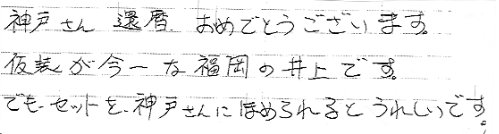 神戸さん 還暦 おめでとうございます。
仮装が今一な福岡の井上です。
でも、セットを、神戸さんにほめられるとうれしいです。